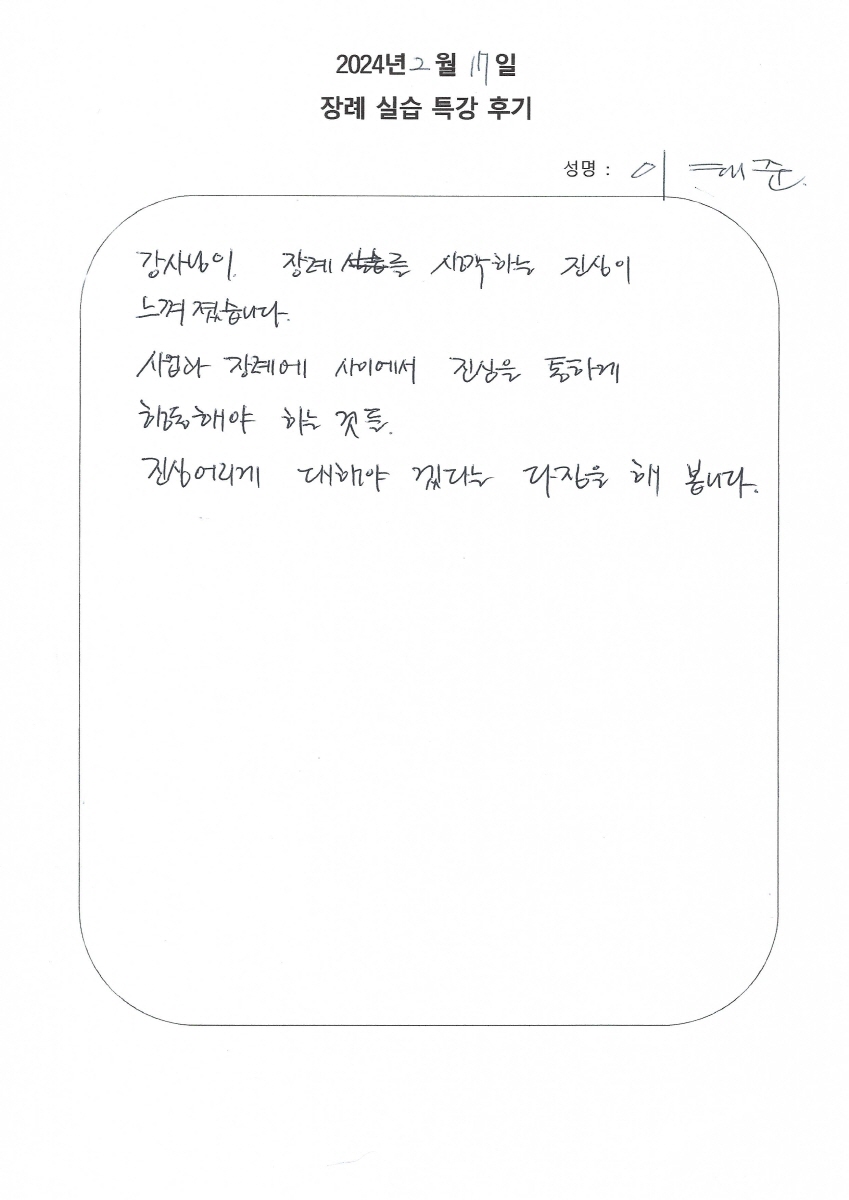 2024년 2월 17일
장례 실습 특강 후기
성명 : 이 준
강사님이 장례 를 시작하는 진심이
느껴 졌습니다.
사업과 장례에 사이에서 진심을 통하게
행동해야 하는 것들.
대해야 겠다는 다짐을 해 봅니다.